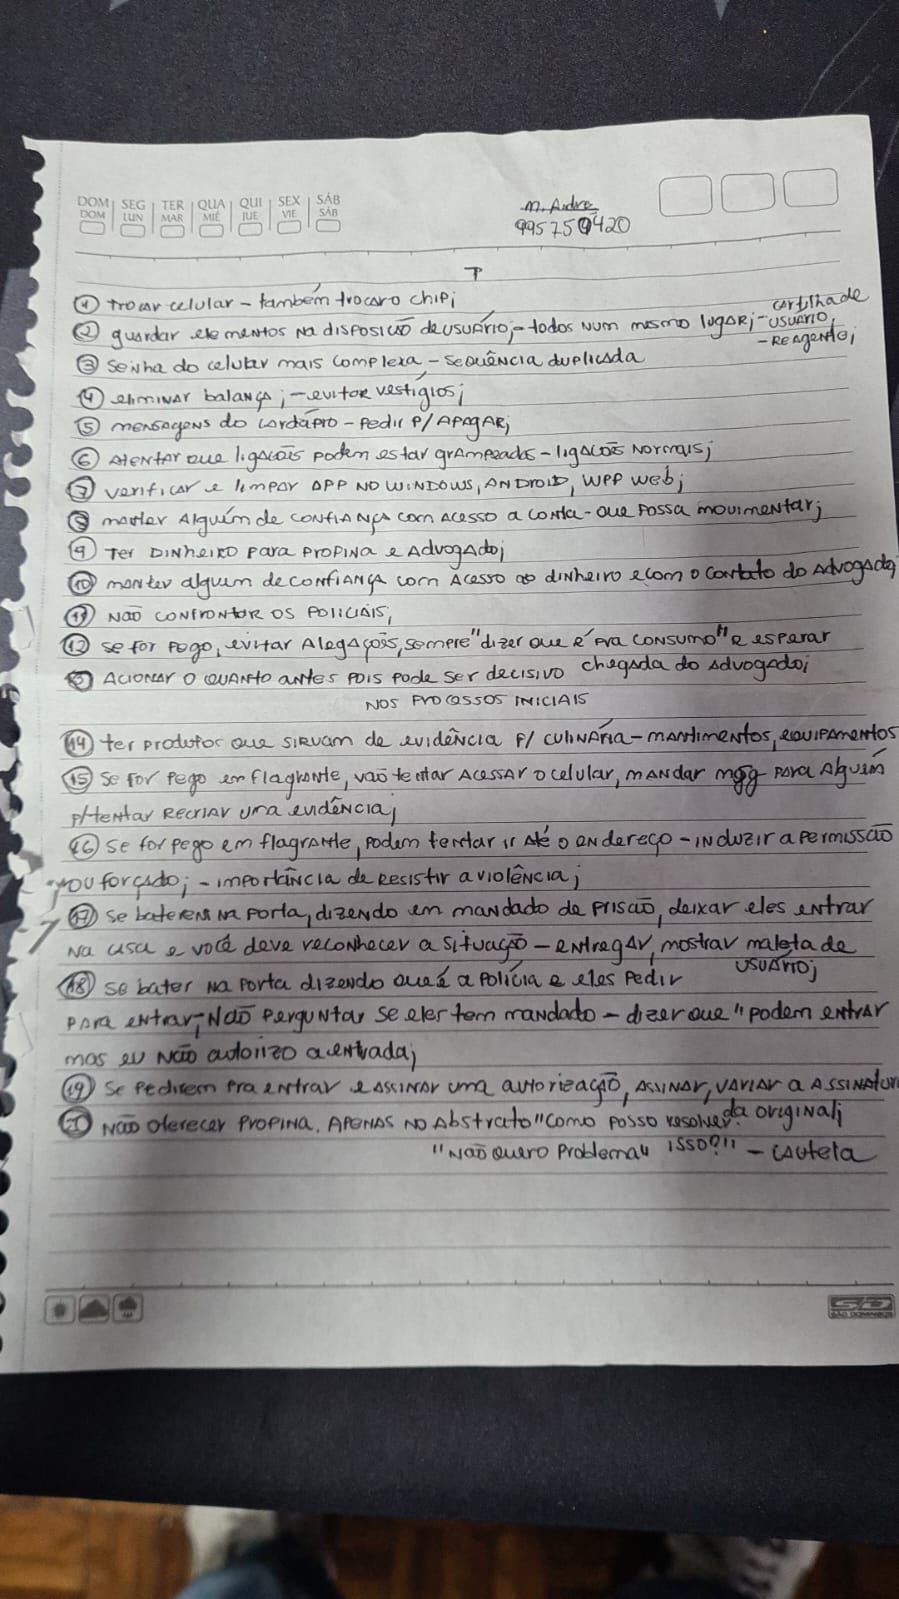 DOM SEG TER QUA QUI SEX SÁB
DOM LUN MAR MIÉ JUE VIE SÁB
M. Andre
995750420
① trocar celular - também trocar o chip;
② guardar elementos na disposição de usuário; - todos num mesmo lugar; - cartilha de usuário,
- Reagente;
③ Senha do celular mais complexa - sequência duplicada
④ eliminar balança; - evitar vestígios;
⑤ mensagens do cardápio - pedir p/ APAGAR;
⑥ Atentar que ligações podem estar grampeadas - ligações normais;
⑦ verificar e limpar APP no Windows, Android, WPP web;
⑧ manter Alguém de confiança com acesso a conta - que possa movimentar;
⑨ Ter Dinheiro para propina e Advogado;
⑩ manter alguem de confiança com acesso ao dinheiro e com o contato do Advogado;
⑪ Não confrontar os policiais,
⑫ se for pego, evitar Alegações, sempre "dizer que é pra consumo" e esperar
chegada do Advogado;
⑬ Acionar o quanto antes pois pode ser decisivo
nos processos iniciais
⑭ ter produtos que sirvam de evidência p/ culinária - mantimentos, equipamentos
⑮ Se for pego em flagrante, vão tentar acessar o celular, mandar msg para Alguém
p/ tentar recriar uma evidência;
⑯ Se for pego em flagrante, podem tentar ir até o endereço - induzir a permissão
ou forçado; - importância de resistir a violência;
⑰ Se baterem na porta, dizendo em mandado de prisão, deixar eles entrar
na casa e você deve reconhecer a situação - entregar, mostrar maleta de
usuário;
⑱ se bater na porta dizendo que é a polícia e eles pedir
para entrar, - Não perguntar se eles tem mandado - dizer que "podem entrar
mas eu não autorizo a entrada;
⑲ Se pedirem pra entrar e assinar uma autorização, assinar, variar a assinatura
da original;
Não oferecer propina. Apenas no abstrato "como posso resolver
isso?"
"Não quero problema" - cautela
SD
SÃO DOMINGOS